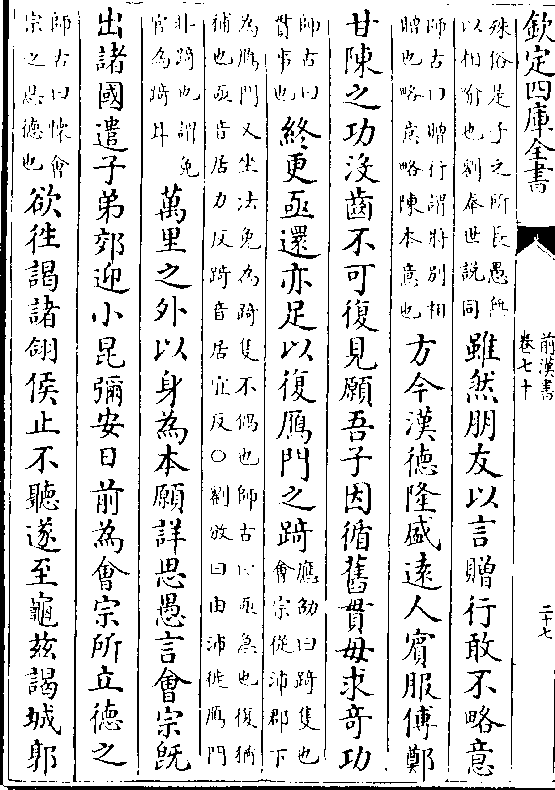 欽定四庫全書
前漢書
卷七十
二十七
殊俗是子之所長愚無
以相喻也劉奉世説同
雖然朋友以言贈行敢不略意
師古曰贈行謂將别相
贈也略意略陳本意也
方今漢德隆盛遠人賓服傅鄭
甘陳之功没齒不可復見願吾子因循舊貫毋求竒功
師古曰
貫事也
終更亟還亦足以復鴈門之踦
應劭曰踦隻也
會宗從沛郡下
為鴈門又坐法免為踦隻不偶也師古曰亟急也復猶
補也亟音居力反踦音居宜反○劉攽曰由沛徙鴈門
非踦也謂免
官為踦耳
萬里之外以身為本願詳思愚言會宗既
出諸國遣子弟郊迎小昆彌安日前為會宗所立德之
師古曰懷會
宗之恩德也
欲往謁諸翖侯止不聽遂至龜兹謁城郭